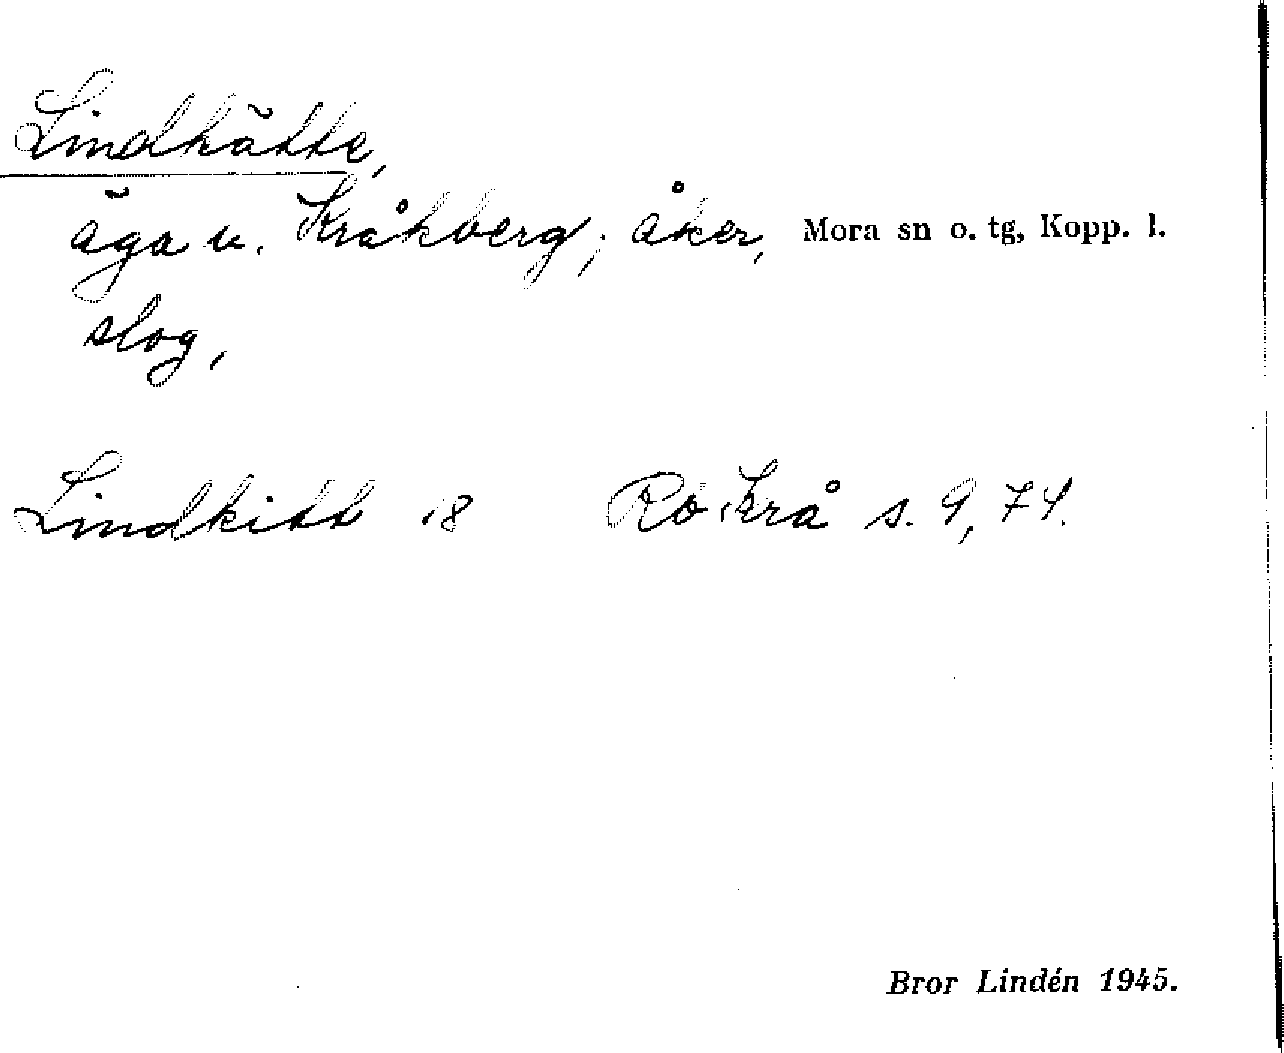 Lindkätte,
äga u. Kråkberg; åker, Mora sn o. tg, Kopp. l.
slog,
Lindkitt 18 Rö Krå s. 9, 74.
Bror Lindén 1945.